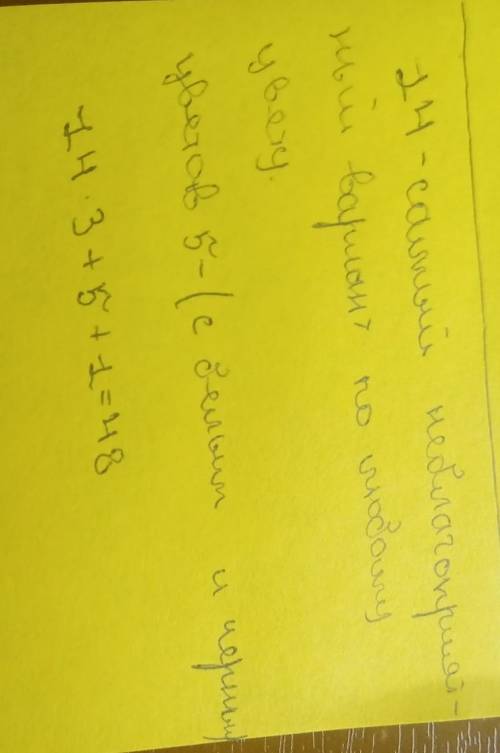 14 - самый неблагоприят-
ный вариант по любому
цвету.
цветов 5 - (с белым и черным)
14 · 3 + 5 + 1 = 48